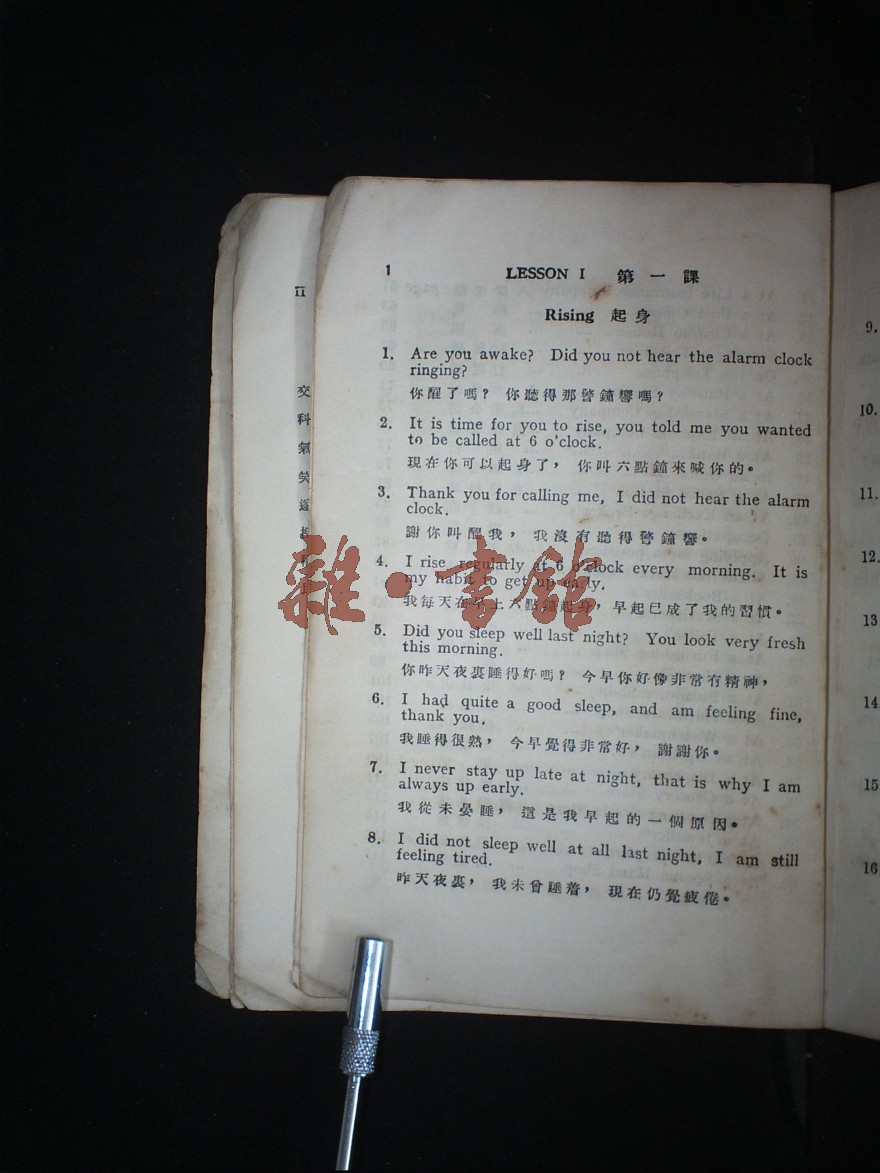 1 LESSON I 第一課
Rising 起身
1. Are you awake? Did you not hear the alarm clock
ringing?
你醒了嗎？ 你聽得那警鐘響嗎？
2. It is time for you to rise, you told me you wanted
to be called at 6 o'clock.
現在你可以起身了， 你叫六點鐘來喊你的。
3. Thank you for calling me, I did not hear the alarm
clock.
謝你叫醒我， 我沒有聽得警鐘響。
4. I rise regularly at 6 o'clock every morning. It is
my habit to get up early.
我每天在早上六點鐘起身，早起已成了我的習慣。
5. Did you sleep well last night? You look very fresh
this morning.
你昨天夜裏睡得好嗎？ 今早你好像非常有精神，
6. I had quite a good sleep, and am feeling fine,
thank you.
我睡得很熟， 今早覺得非常好， 謝謝你。
7. I never stay up late at night, that is why I am
always up early.
我從未晏睡， 這是我早起的一個原因。
8. I did not sleep well at all last night, I am still
feeling tired.
昨天夜裏， 我未曾睡着， 現在仍覺疲倦。
II
交
科
氣
笑
9.
10.
11.
12.
13
14
15
16
雜·書館